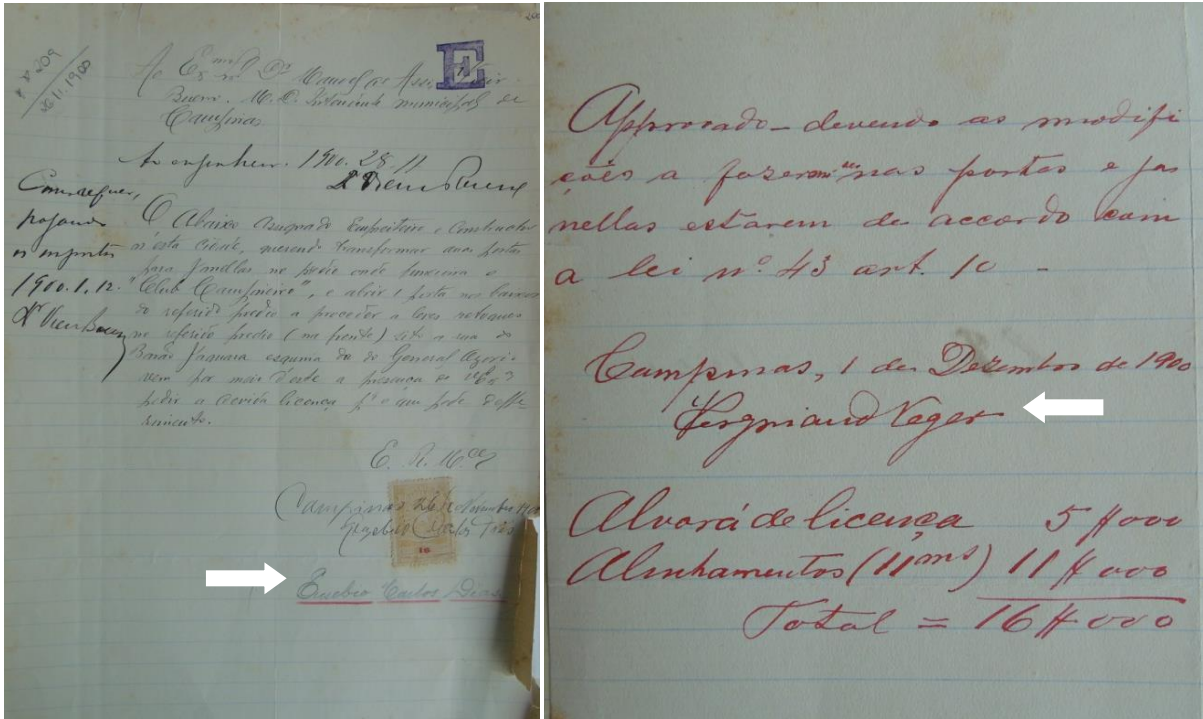 Nº 209
26.11.1900
E
Ao Exmo Sr. Dr. Manoel de Assis Vieira
Bueno. M. D. Intendente municipal de
Campinas
Ao engenheiro. 1900. 28, 11
Como requer,
pagando
os impostos
1900.1.12.
O Abaixo assignado Empreiteiro e Constructor
n'esta Cidade, querendo transformar duas portas
para Janellas no predio onde funcciona o
"Club Campineiro", e abrir 1 porta nos baixos
do referido predio e proceder a leves retoques
no referido predio (na frente) sito a rua do
Barão Jaguara esquina da do General Ozorio
vem por meio d'este a presença de
pedir a devida licença pª o que pede deffe-
rimento.
E. R. Mce
Campinas 26 Novembro 1900
Euzebio Carlos Dias
Euzebio Carlos Dias
Approvado - devendo as modifi
cções a fazerem nas portas e ja
nellas estarem de accordo com
a lei nº 43 art. 10 -
Campinas, 1 de Dezembro de 1900
Vergniaud Neger
Alvará de licença 5$000
Alinhamentos (11ms) 11$000
Total = 16$000